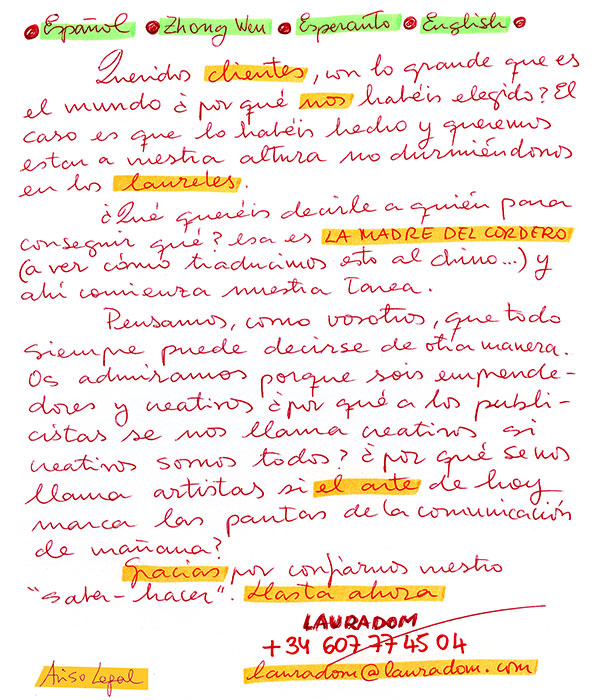 • Español • Zhong Wen • Esperanto • English •
Queridos clientes, con lo grande que es
el mundo ¿por qué nos habéis elegido? El
caso es que lo habéis hecho y queremos
estar a vuestra altura no durmiéndonos
en los laureles.
¿Qué queréis decirle a quién para
conseguir qué? esa es LA MADRE DEL CORDERO
(a ver cómo traducimos esto al chino...) y
ahí comienza nuestra Tarea.
Pensamos, como vosotros, que todo
siempre puede decirse de otra manera.
Os admiramos porque sois emprende-
dores y creativos ¿por qué a los publi-
cistas se nos llama creativos si
creativos somos todos? ¿por qué se nos
llama artistas si el arte de hoy
marca las pautas de la comunicación
de mañana?
Gracias por confiarnos vuestro
"saber-hacer". Hasta ahora
LAURADOM
+34 607 77 45 04
Aviso Legal
lauradom@lauradom.com